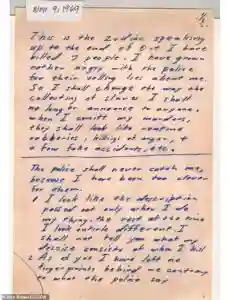 Nov 9, 1969
This is the Zodiac speaking
up to the end of Oct I have
killed 7 people. I have grown
rather angry with the police
for their telling lies about me.
So I shall change the way the
collecting of slaves. I shall
no longer announce to anyone.
when I comitt my murders,
they shall look like routine
robberies, killings of anger, +
a few fake accidents, etc.
The police shall never catch me,
because I have been too clever
for them.
1 I look like the description
passed out only when I do
my thing, the rest of the time
I look entirle different. I
shall not tell you what my
descise consists of when I kill
2 As of yet I have left no
fingerprints behind me contrary
to what the police say